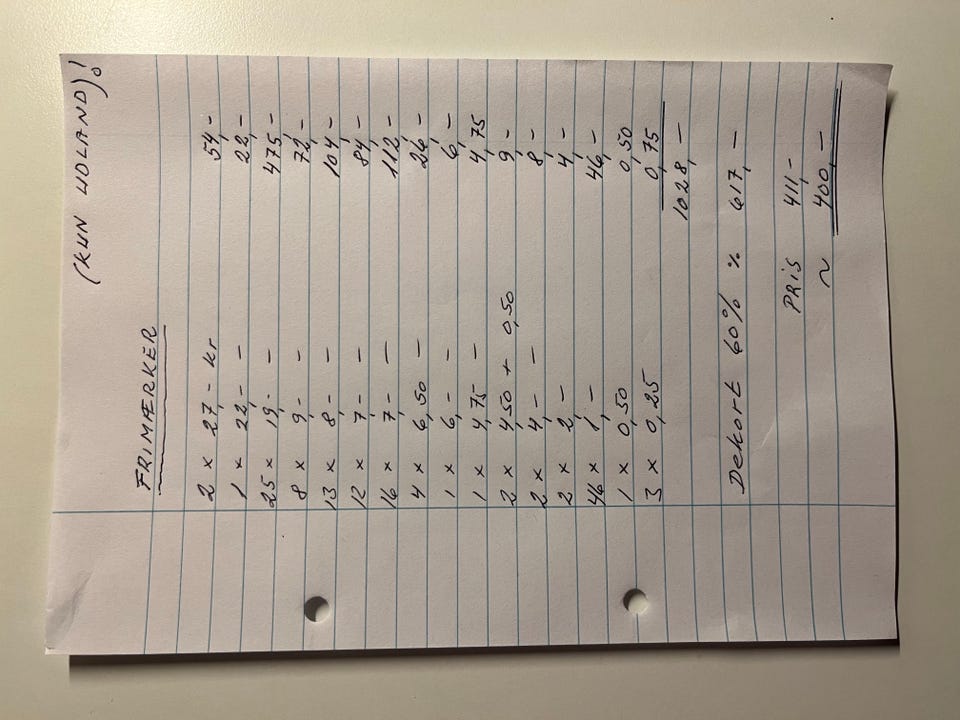 (KUN UDLAND)!
FRIMÆRKER
2 x 27,- kr 54,-
1 x 22,- — 22,-
25 x 19,- — 475,-
8 x 9,- — 72,-
13 x 8,- — 104,-
12 x 7,- — 84,-
16 x 7,- — 112,-
4 x 6,50 — 26,-
1 x 6,- — 6,-
1 x 4,75 — 4,75
2 x 4,50 + 0,50 9,-
2 x 4,- — 8,-
2 x 2,- 4,-
46 x 1,- 46,-
1 x 0,50 0,50
3 x 0,25 0,75
1028,-
Dekort 60% % 617,-
PRIS 411,-
~ 400,-